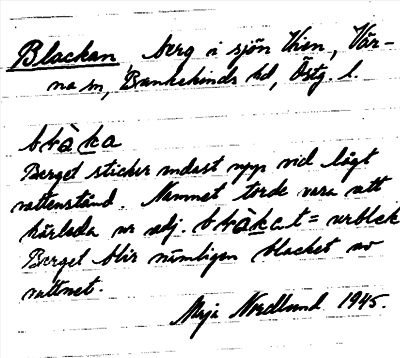 Blackan, berg i sjön Ören, Vår-
na sn, Bankekinds hd, Östg. l.
Berget sticker endast upp vid lågt
vattenstånd. Namnet torde vara att
härleda ur adj. = urblekt
Berget blir nämligen blacket av
vattnet.
Maja Nedlund 1945.